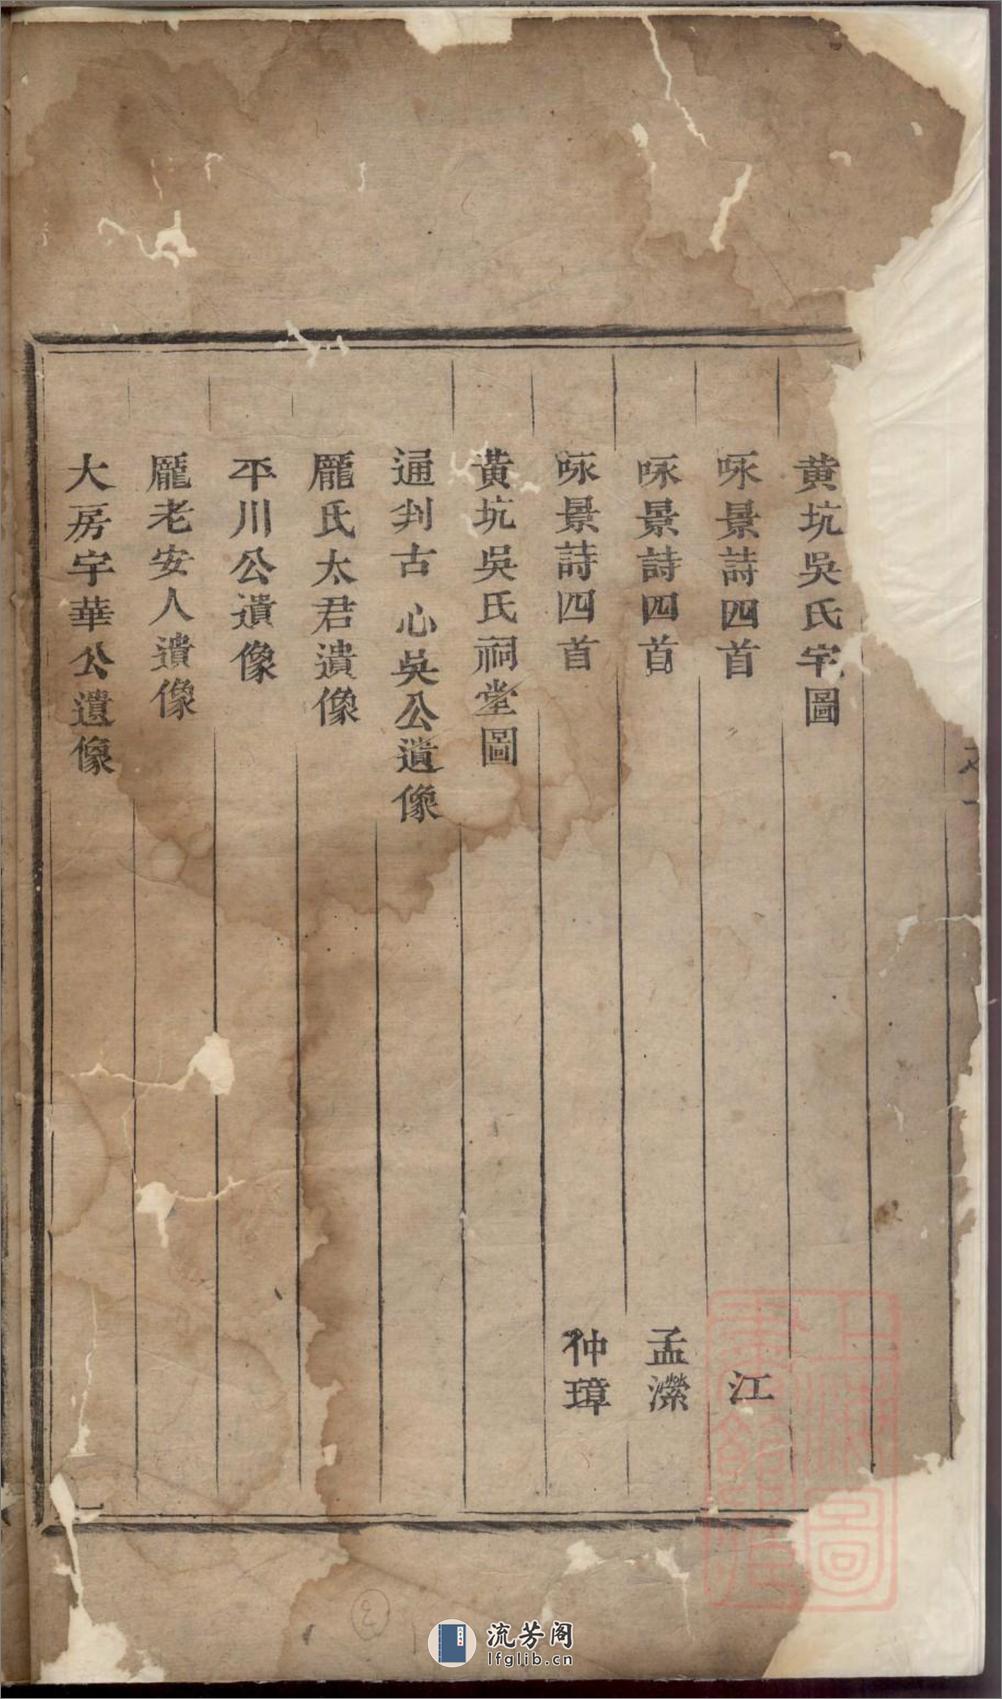 黄坑吳氏宇圖
咏景詩四首 江
咏景詩四首 孟濴
咏景詩四首 仲璋
黃坑吳氏祠堂圖
通判古心吳公遺像
龐氏太君遺像
平川公遺像
龐老安人遺像
大房宇華公遺像
一
上海圖書館藏
3
流芳阁
lfglib.cn